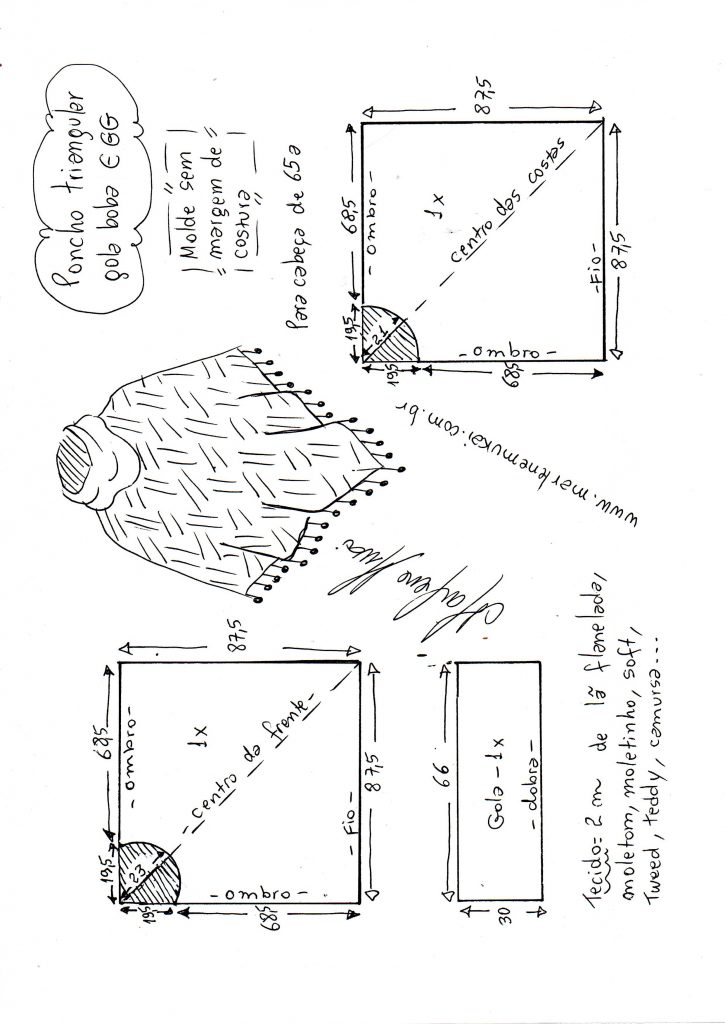 Poncho triangular
gola boba EGG
"Molde sem
margem de
costura"
Para cabeça de 65a
87,5
68,5
19,5
- ombro -
1x
centro da frente -
23
19,5
- ombro -
68,5
- Fio -
87,5
87,5
68,5
19,5
- ombro -
1x
centro das costas
21
19,5
- ombro -
68,5
- Fio -
87,5
www.marlenemukai.com.br
Marlene Mukai
66
Gola - 1x
- dobra -
30
Tecido = 2 m de lã flanelada,
moletom, moletinho, soft,
Tweed, teddy, camursa...